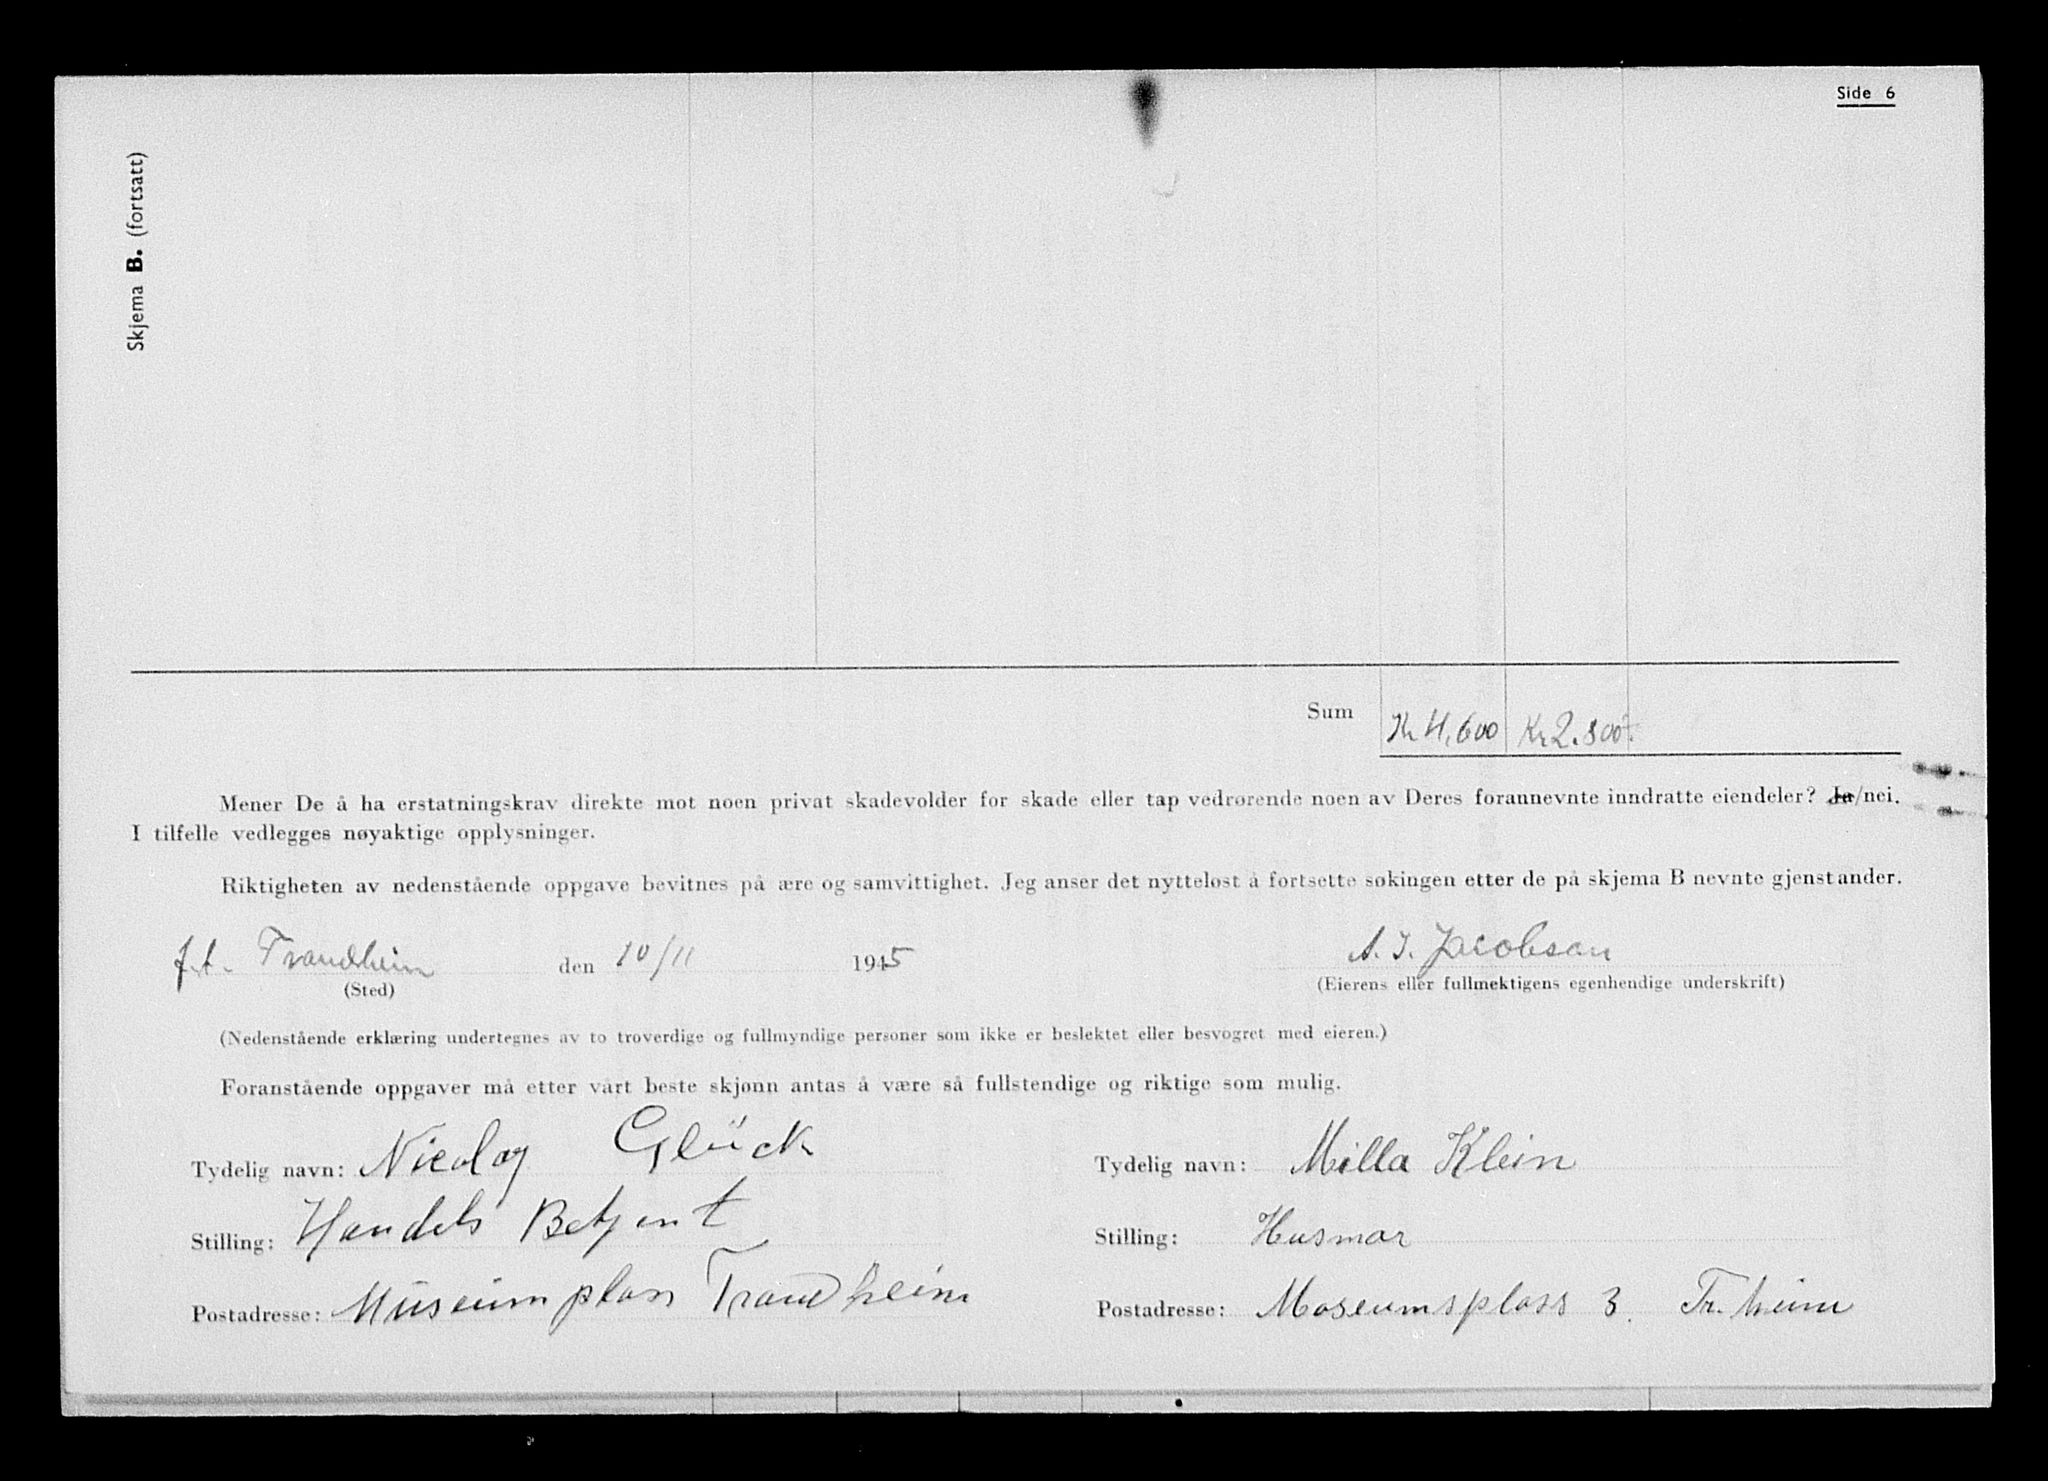 Side 6
Skjema B. (fortsatt)
Sum Kr 4,600 Kr 2.800.-
Mener De å ha erstatningskrav direkte mot noen privat skadevolder for skade eller tap vedrørende noen av Deres forannevnte inndratte eiendeler? Ja/nei.
I tilfelle vedlegges nøyaktige opplysninger.
Riktigheten av nedenstående oppgave bevitnes på ære og samvittighet. Jeg anser det nytteløst å fortsette søkingen etter de på skjema B nevnte gjenstander.
f.t. Trondheim den 10/11 1945 A. I. Jacobson
(Sted) (Eierens eller fullmektigens egenhendige underskrift)
(Nedenstående erklæring undertegnes av to troverdige og fullmyndige personer som ikke er beslektet eller besvogret med eieren.)
Foranstående oppgaver må etter vårt beste skjønn antas å være så fullstendige og riktige som mulig.
Tydelig navn: Nicolay Glück Tydelig navn: Milla Klein
Stilling: Handels Betjent Stilling: Husmor
Postadresse: Museumplass Trondheim Postadresse: Moseumsplass 3. Tr.heim